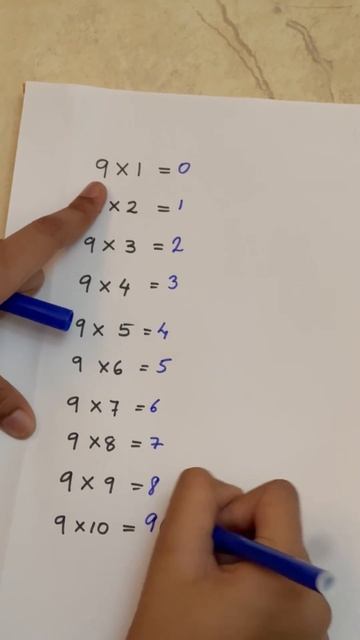 9 × 1 = 0
× 2 = 1
9 × 3 = 2
9 × 4 = 3
9 × 5 = 4
9 × 6 = 5
9 × 7 = 6
9 × 8 = 7
9 × 9 = 8
9 × 10 = 9